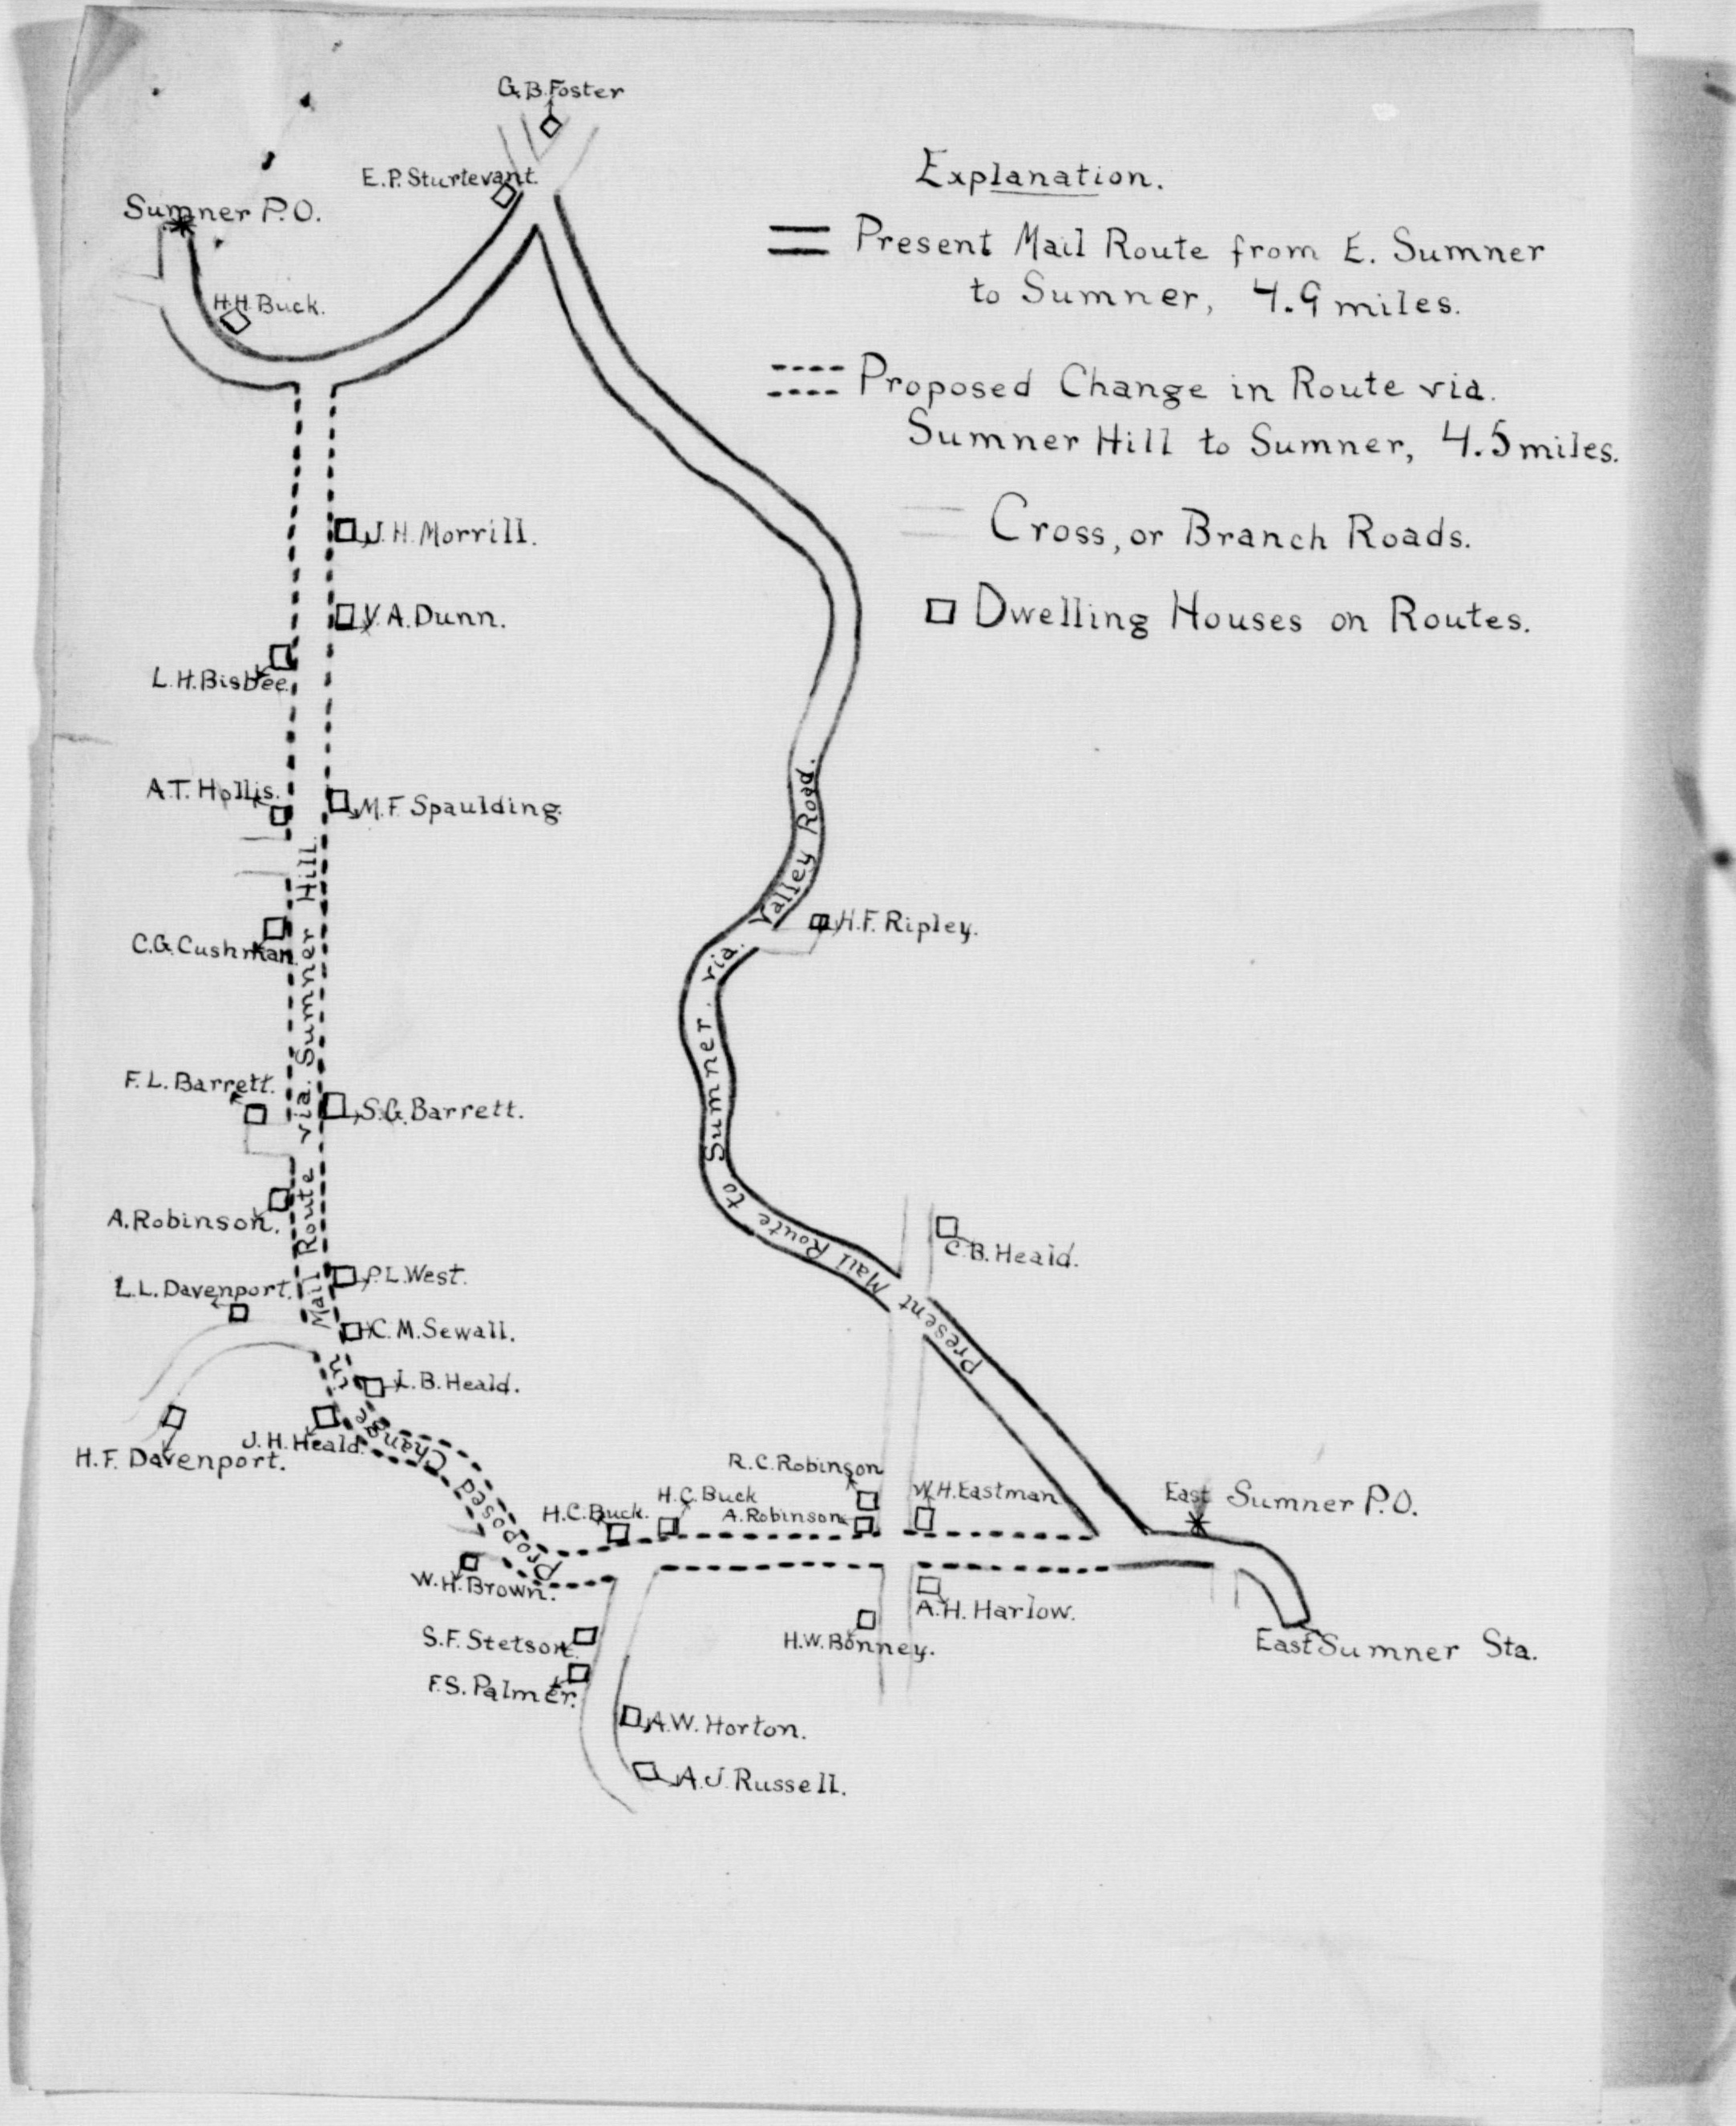 G.B. Foster
E.P. Sturtevant.
Sumner P.O.
H.H. Buck.
Explanation.
Present Mail Route from E. Sumner
to Sumner, 4.9 miles.
Proposed Change in Route via.
Sumner Hill to Sumner, 4.5 miles.
Cross, or Branch Roads.
Dwelling Houses on Routes.
J.H. Morrill.
V.A. Dunn.
L.H. Bisbee.
A.T. Hollis.
M.F. Spaulding.
C.G. Cushman.
H.F. Ripley.
F.L. Barrett.
S.G. Barrett.
A. Robinson.
P.L. West.
L.L. Davenport.
C.M. Sewall.
L.B. Heald.
J.H. Heald.
H.F. Davenport.
Proposed Change in Mail Route via. Sumner Hill.
Present Mail Route to Sumner via. Valley Road.
C.B. Heald.
R.C. Robinson
H.C. Buck.
H.C. Buck
A. Robinson
W.H. Eastman
East Sumner P.O.
W.H. Brown.
A.H. Harlow.
S.F. Stetson.
H.W. Bonney.
East Sumner Sta.
F.S. Palmer.
A.W. Horton.
A.J. Russell.